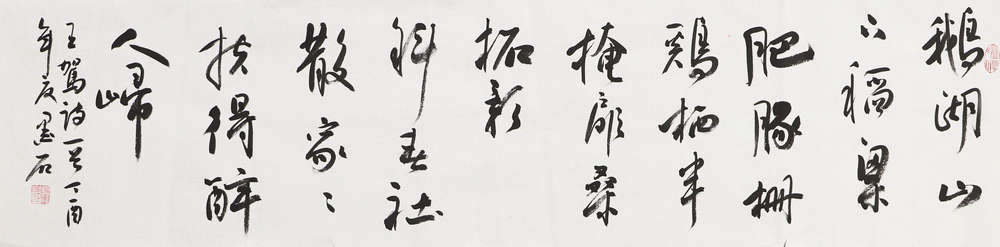 鵝湖山
下稻粱
肥豚栅
鷄栖半
掩扉桑
柘影
斜春社
散家〻
扶得醉
人歸
王駕詩一首丁酉
年夏墨石